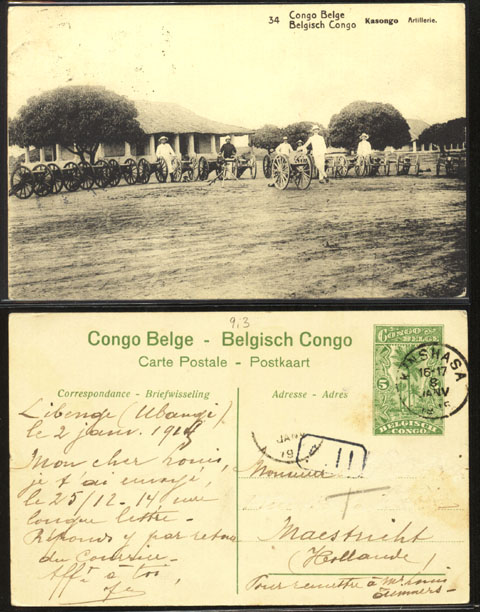 34 Congo Belge
Belgisch Congo Kasongo Artillerie.
9,3
Congo Belge - Belgisch Congo
Carte Postale - Postkaart
Correspondance - Briefwisseling
Adresse - Adres
CONGO BELGE
5
BELGISCH CONGO
KINSHASA
16-17
8
JANV
JANV
19
11
Libenge (Ubangi)
le 2 janv. 191
Mon cher Louis,
je t'ai envoyé,
le 25/12-14 une
longue lettre -
Réponds y par retour
du Courrier -
Affé à toi,
Monsieur
T
Maestricht
(Hollande)
Pour remettre à Mr Louis